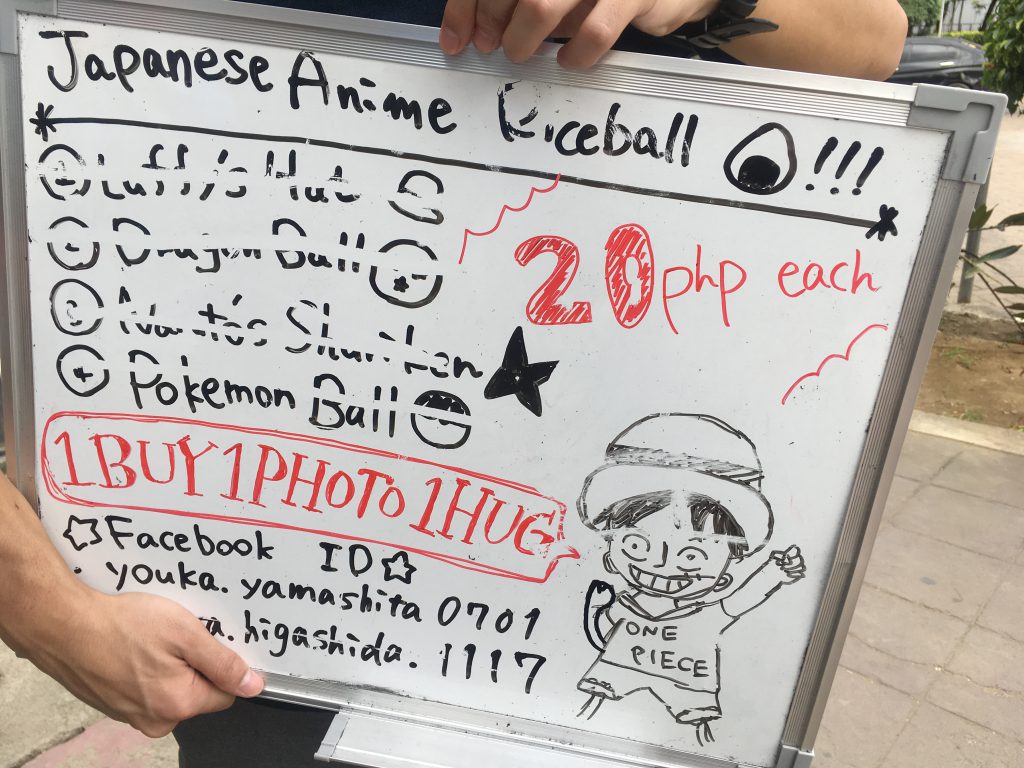 Japanese Anime Riceball !!!
Luffy's Hat
Dragon Ball
20 php each
Naruto's Shuriken
Pokemon Ball
1BUY 1PHOTO 1HUG
Facebook ID
youka.yamashita 0701
a.higashida.1117
ONE
PIECE